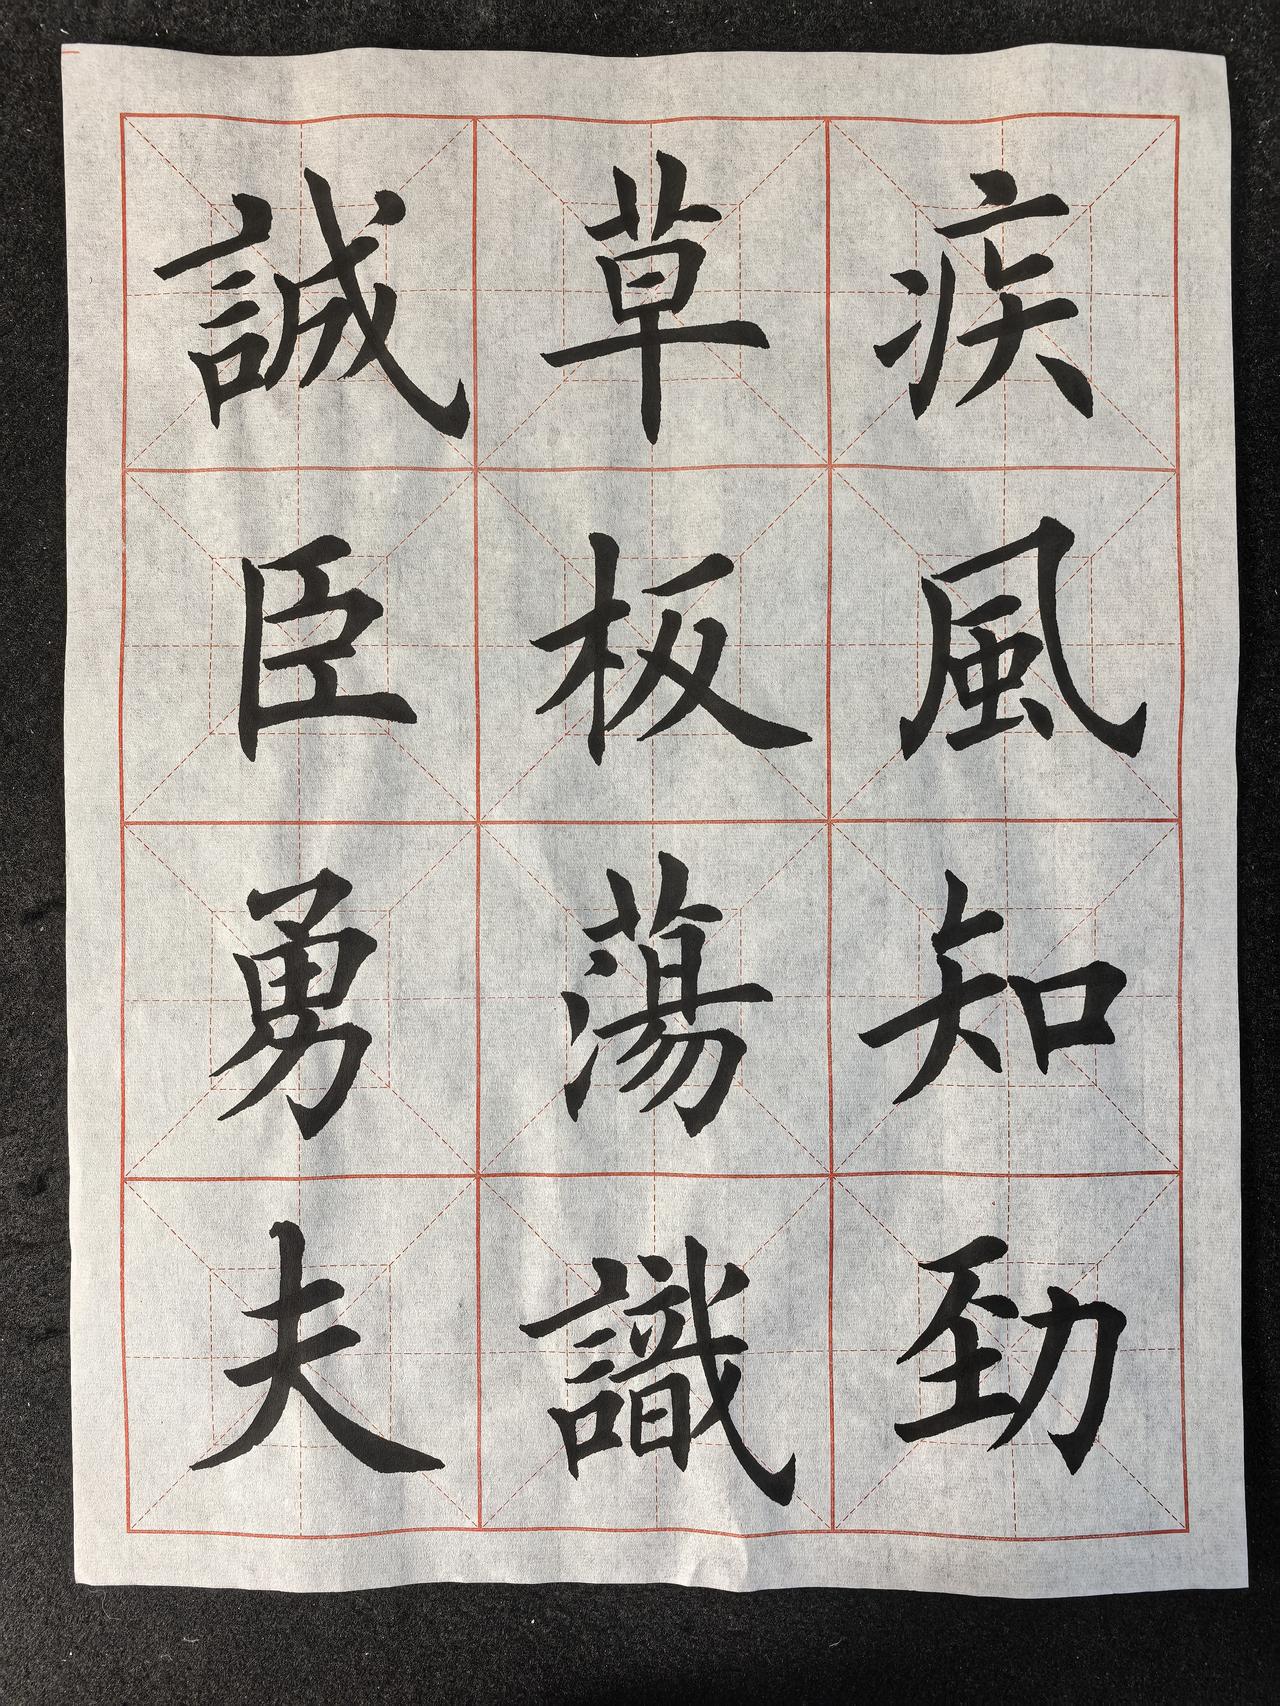 疾風知勁
草板蕩識
誠臣勇夫